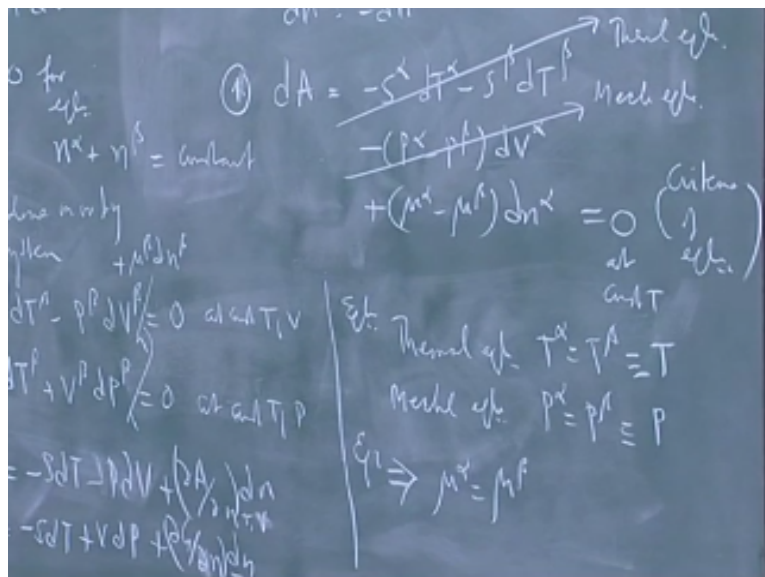 dn · = -dn
0 for
eqlb.
n^α + n^β = constant
① dA = -S^α dT^α - S^β dT^β → Thermal eqlb.
-(P^α - P^β) dV^α → Mech eqlb.
+(μ^α - μ^β) dn^α = 0 (Criteria of eqlb.)
at const T
+μ^β dn^β
dT^β - P^β dV^β = 0 at const T, V
dT^β + V^β dP^β = 0 at const T, P
= -SdT - PdV + (∂A/∂n)_T,V dn
= -SdT + VdP + (∂G/∂n) dn
Eqlb.
Thermal eqlb. T^α = T^β ≡ T
Mechl eqlb. P^α = P^β ≡ P
Eqlb ⇒ μ^α = μ^β